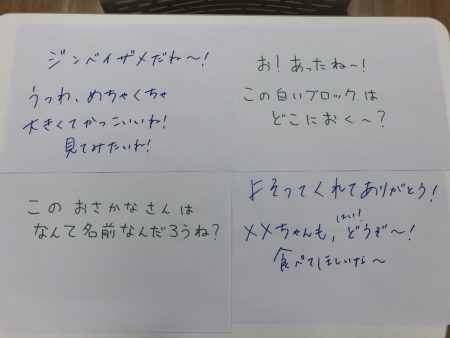 ジンベイザメだね〜!
うっわ、めちゃくちゃ
大きくてかっこいいね!
見てみたいね!
お!あったね〜!
この白いブロックは
どこにおく〜?
この おさかなさんは
なんて名前なんだろうね?
よそってくれてありがとう!
はい!
××ちゃんも、どうぞ〜!
食べてほしいな〜